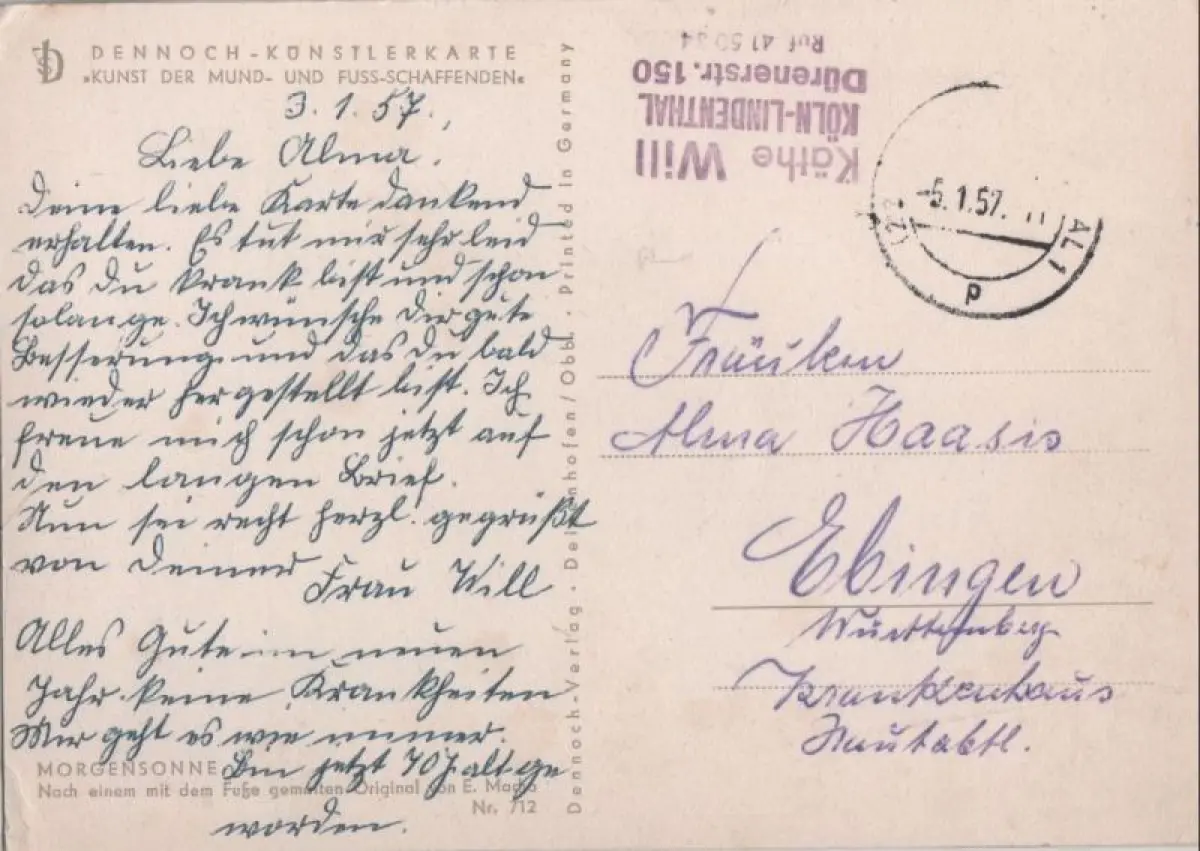 DENNOCH-KÜNSTLERKARTE
»KUNST DER MUND- UND FUSS-SCHAFFENDEN«
3.1.57.,
Liebe Alma.
Deine liebe Karte dankend
erhalten. Es tut mir sehr leid
das du krank bist und schon
solange. Ich wünsche Dir gute
Besserung und das du bald
wieder hergestellt bist. Ich
freue mich schon jetzt auf
den langen Brief.
Nun sei recht herzl. gegrüßt
von Deiner
Frau Will
Alles Gute im neuen
Jahr. keine Krankheiten
Mir geht es wie immer.
Bin jetzt 70 J alt ge
worden.
MORGENSONNE
Nach einem mit dem Fuße gemalten Original von E.
Nr. 712
Dennoch-Verlag · Deisenhofen/Obb. · Printed in Germany
Käthe Will
KÖLN-LINDENTHAL
Dürenerstr. 150
Ruf 41 50 34
-5.1.57.
AL 1
p
Fräulein
Alma Haasis
Ebingen
Württemberg
Krankenhaus
Hautabtl.